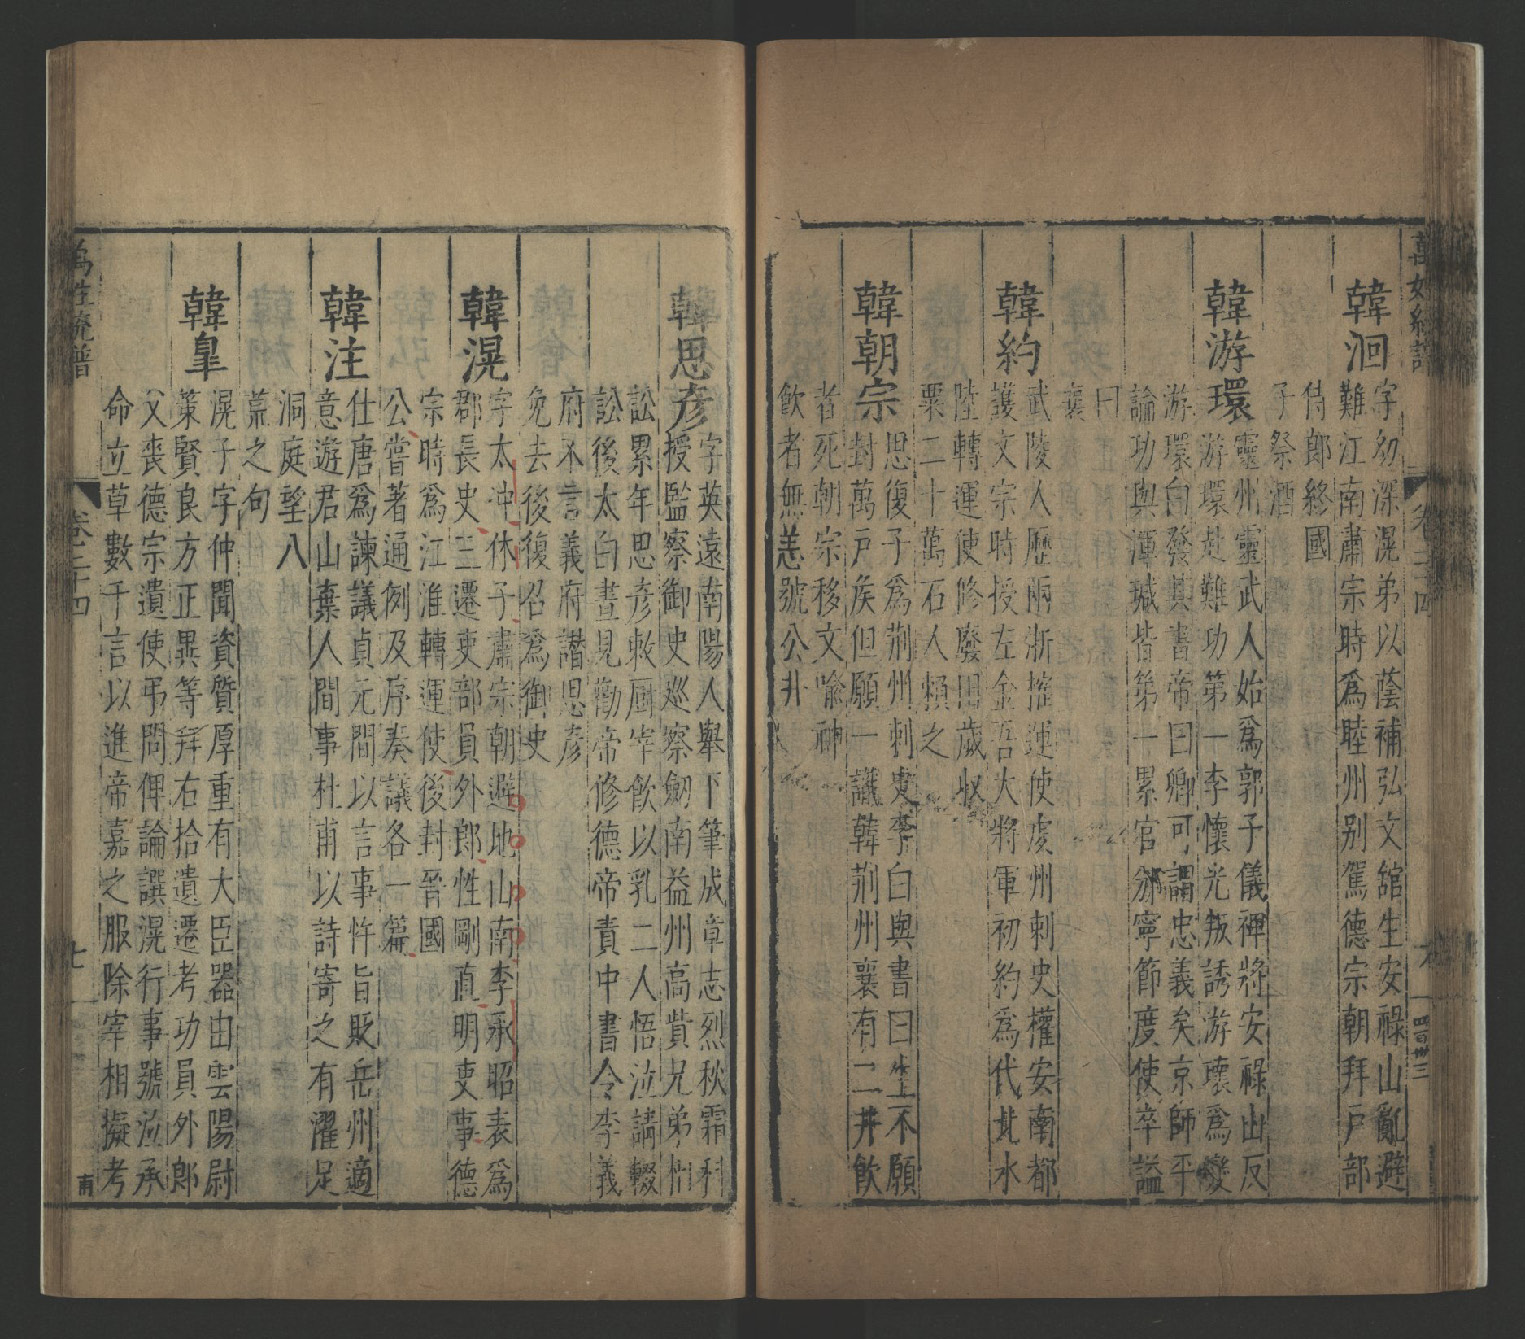 萬姓統譜
卷二十四
四百卅三
韓洄
字幼深滉弟以蔭補弘文館生安祿山亂避
難江南肅宗時爲睦州别駕德宗朝拜戸部
侍郎終國
子祭酒
韓游環
靈州靈武人始爲郭子儀裨將安祿山反
游環赴難功第一李懷光叛誘游環爲變
游環白發其書帝曰卿可謂忠義矣京師平
論功與渾瑊皆第一累官邠寧節度使卒謚
曰
襄
韓約
武陵人歷兩浙搉運使虔州刺史權安南都
護文宗時授左金吾大將軍初約爲代北水
陸轉運使修廢田歲収
粟二十萬石人頼之
韓朝宗
思復子爲荆州刺史李白與書曰生不願
封萬戸侯但願一識韓荆州襄有二井飲
者死朝宗移文喻神
飲者無恙號公井
韓思彦
字英遠南陽人舉下筆成章志烈秋霜科
授監察御史巡察劒南益州高貲兄弟相
訟累年思彦敕厨宰飲以乳二人悟泣請輟
訟後太白晝見勸帝修德帝責中書令李義
府不言義府譖思彦
免去後復召爲御史
韓滉
字太冲休子肅宗朝避地山南李承昭表爲
郡長史三遷吏部員外郎性剛直明吏事德
宗時爲江淮轉運使後封晉國
公嘗著通例及序奏議各一篇
韓注
仕唐爲諫議貞元間以言事忤旨貶岳州適
意遊君山棄人間事杜甫以詩寄之有濯足
洞庭望八
荒之句
韓臯
滉子字仲聞資質厚重有大臣器由雲陽尉
策賢良方正異等拜右拾遺遷考功員外郎
父喪德宗遣使弔問俾論譔滉行事號泣承
命立草數千言以進帝嘉之服除宰相擬考
萬姓統譜
卷二十四
七
南